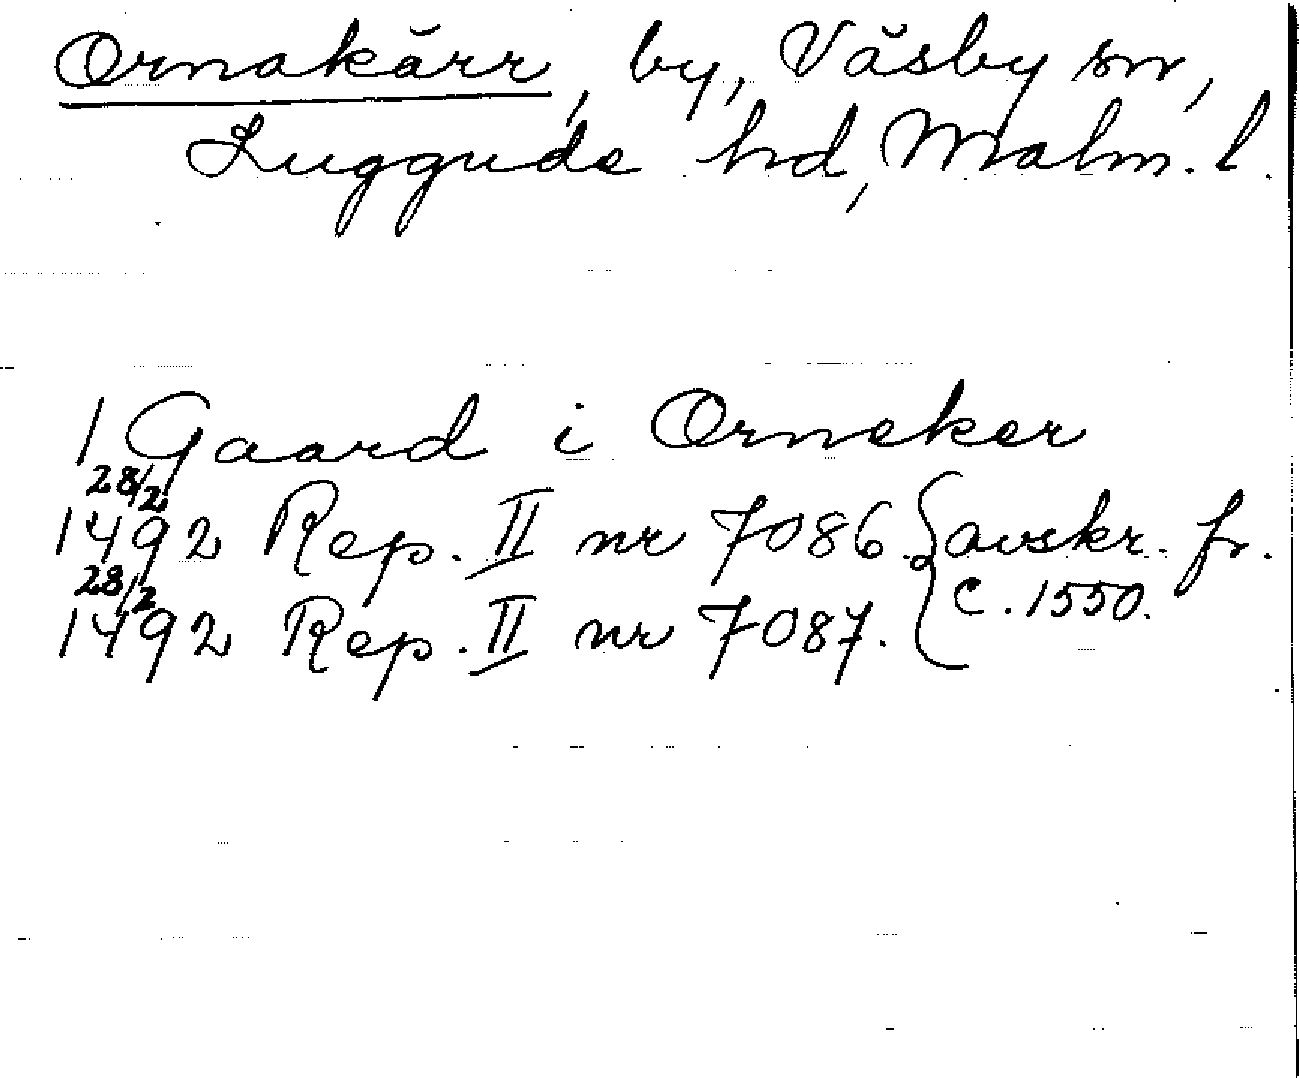 Ornakärr, by, Väsby sn,
Luggude hd, Malm. l.
1 Gaard i Orneker
28/2
1492 Rep. II nr 7086. { avskr. fr.
28/2
1492 Rep. II nr 7087. { c. 1550.